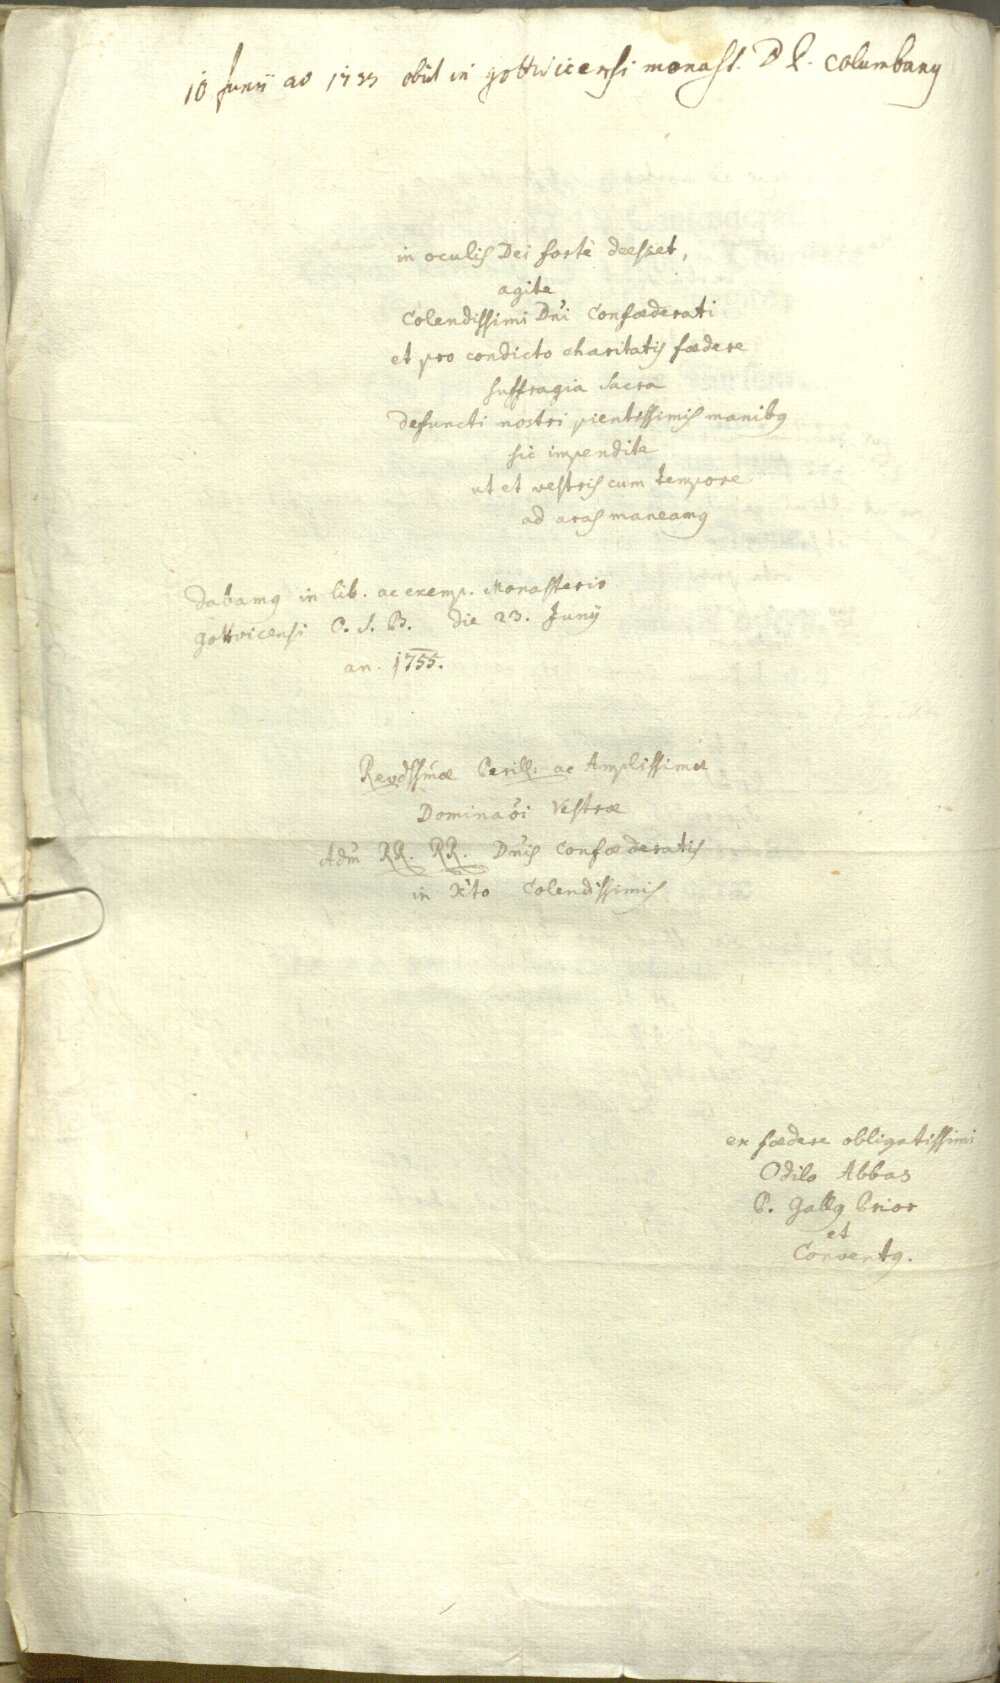 10 Junii ao 1755 obiit in gottwicensi monast. D P. columbanꝰ
in oculis Dei fortè deesset,
agite
Colendissimi Dn̄i Confœderati
et pro condicto charitatis fœdere
suffragia sacra
defuncti nostri pientissimis manibꝰ
sic impendite
ut et vestris cum tempore
ad aras maneamꝰ
Dabamꝰ in lib. ac exemp. Monasterio
gottvicensi O. S. B. die 23. Junij
an. 1755.
Revdssmæ Perill. ac Amplissimæ
Dominaōi Vestræ
Adm̄ RR. RR. Dn̄is Confœderatis
in Xt̄o Colendissimis
ex fœdere obligatissimi
Odilo Abbas
P. Gallꝰ Prior
et
Conventꝰ.